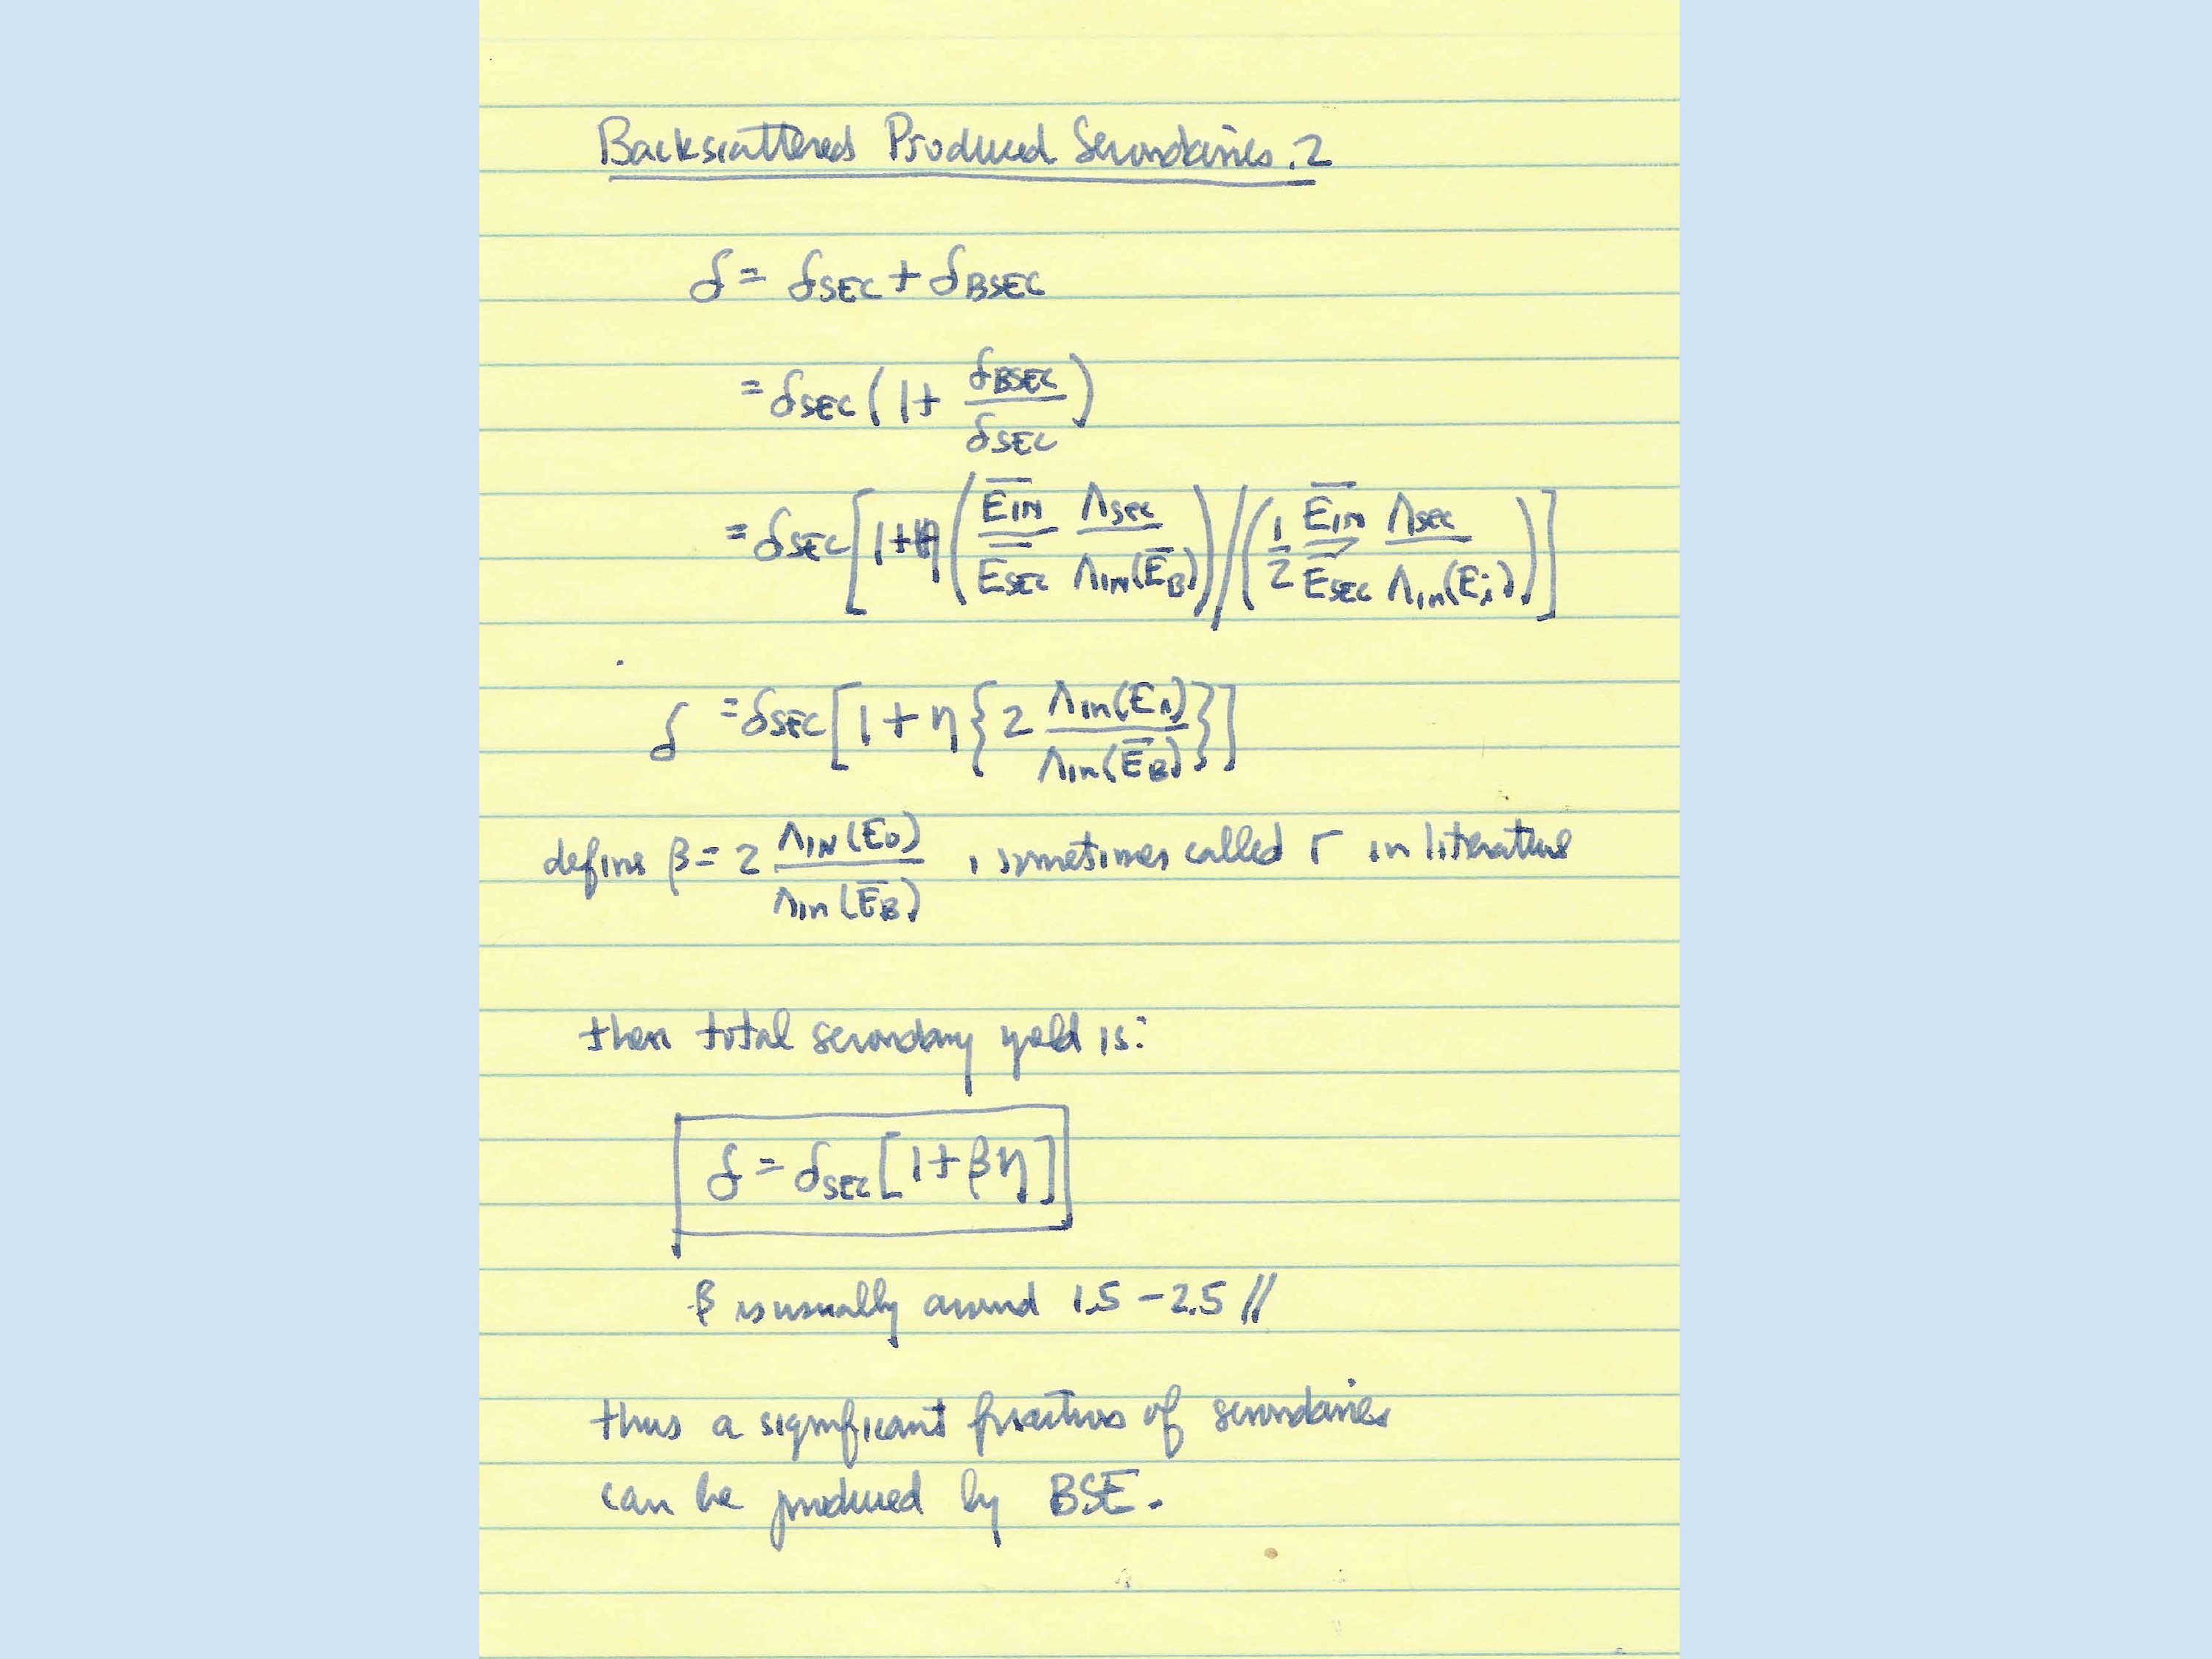 Backscattered Produced Secondaries.2
δ = δSEC + δBSEC
= δSEC (1 + δBSEC / δSEC)
= δSEC [1 + η (E̅IN / E̅SEC ΛSEC / ΛIN(E̅B)) / (1/2 E̅IN / E̅SEC ΛSEC / ΛIN(Ei))]
δ = δSEC [1 + η {2 Λin(Ei) / Λin(E̅B)}]
define β = 2 ΛIN(E0) / Λin(E̅B) , sometimes called Γ in literature
then total secondary yield is:
δ = δSEC [1 + βη]
β is usually around 1.5 – 2.5 //
thus a significant fraction of secondaries
can be produced by BSE.